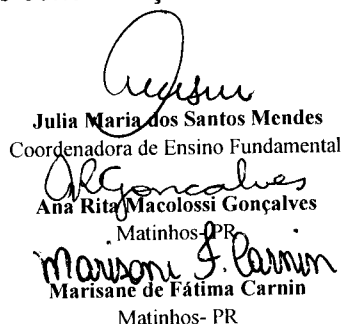 Julia Maria dos Santos Mendes
Coordenadora de Ensino Fundamental
ARGoncalves
Ana Rita Macolossi Gonçalves
Matinhos-PR
Marisane F. Carnin
Marisane de Fátima Carnin
Matinhos- PR